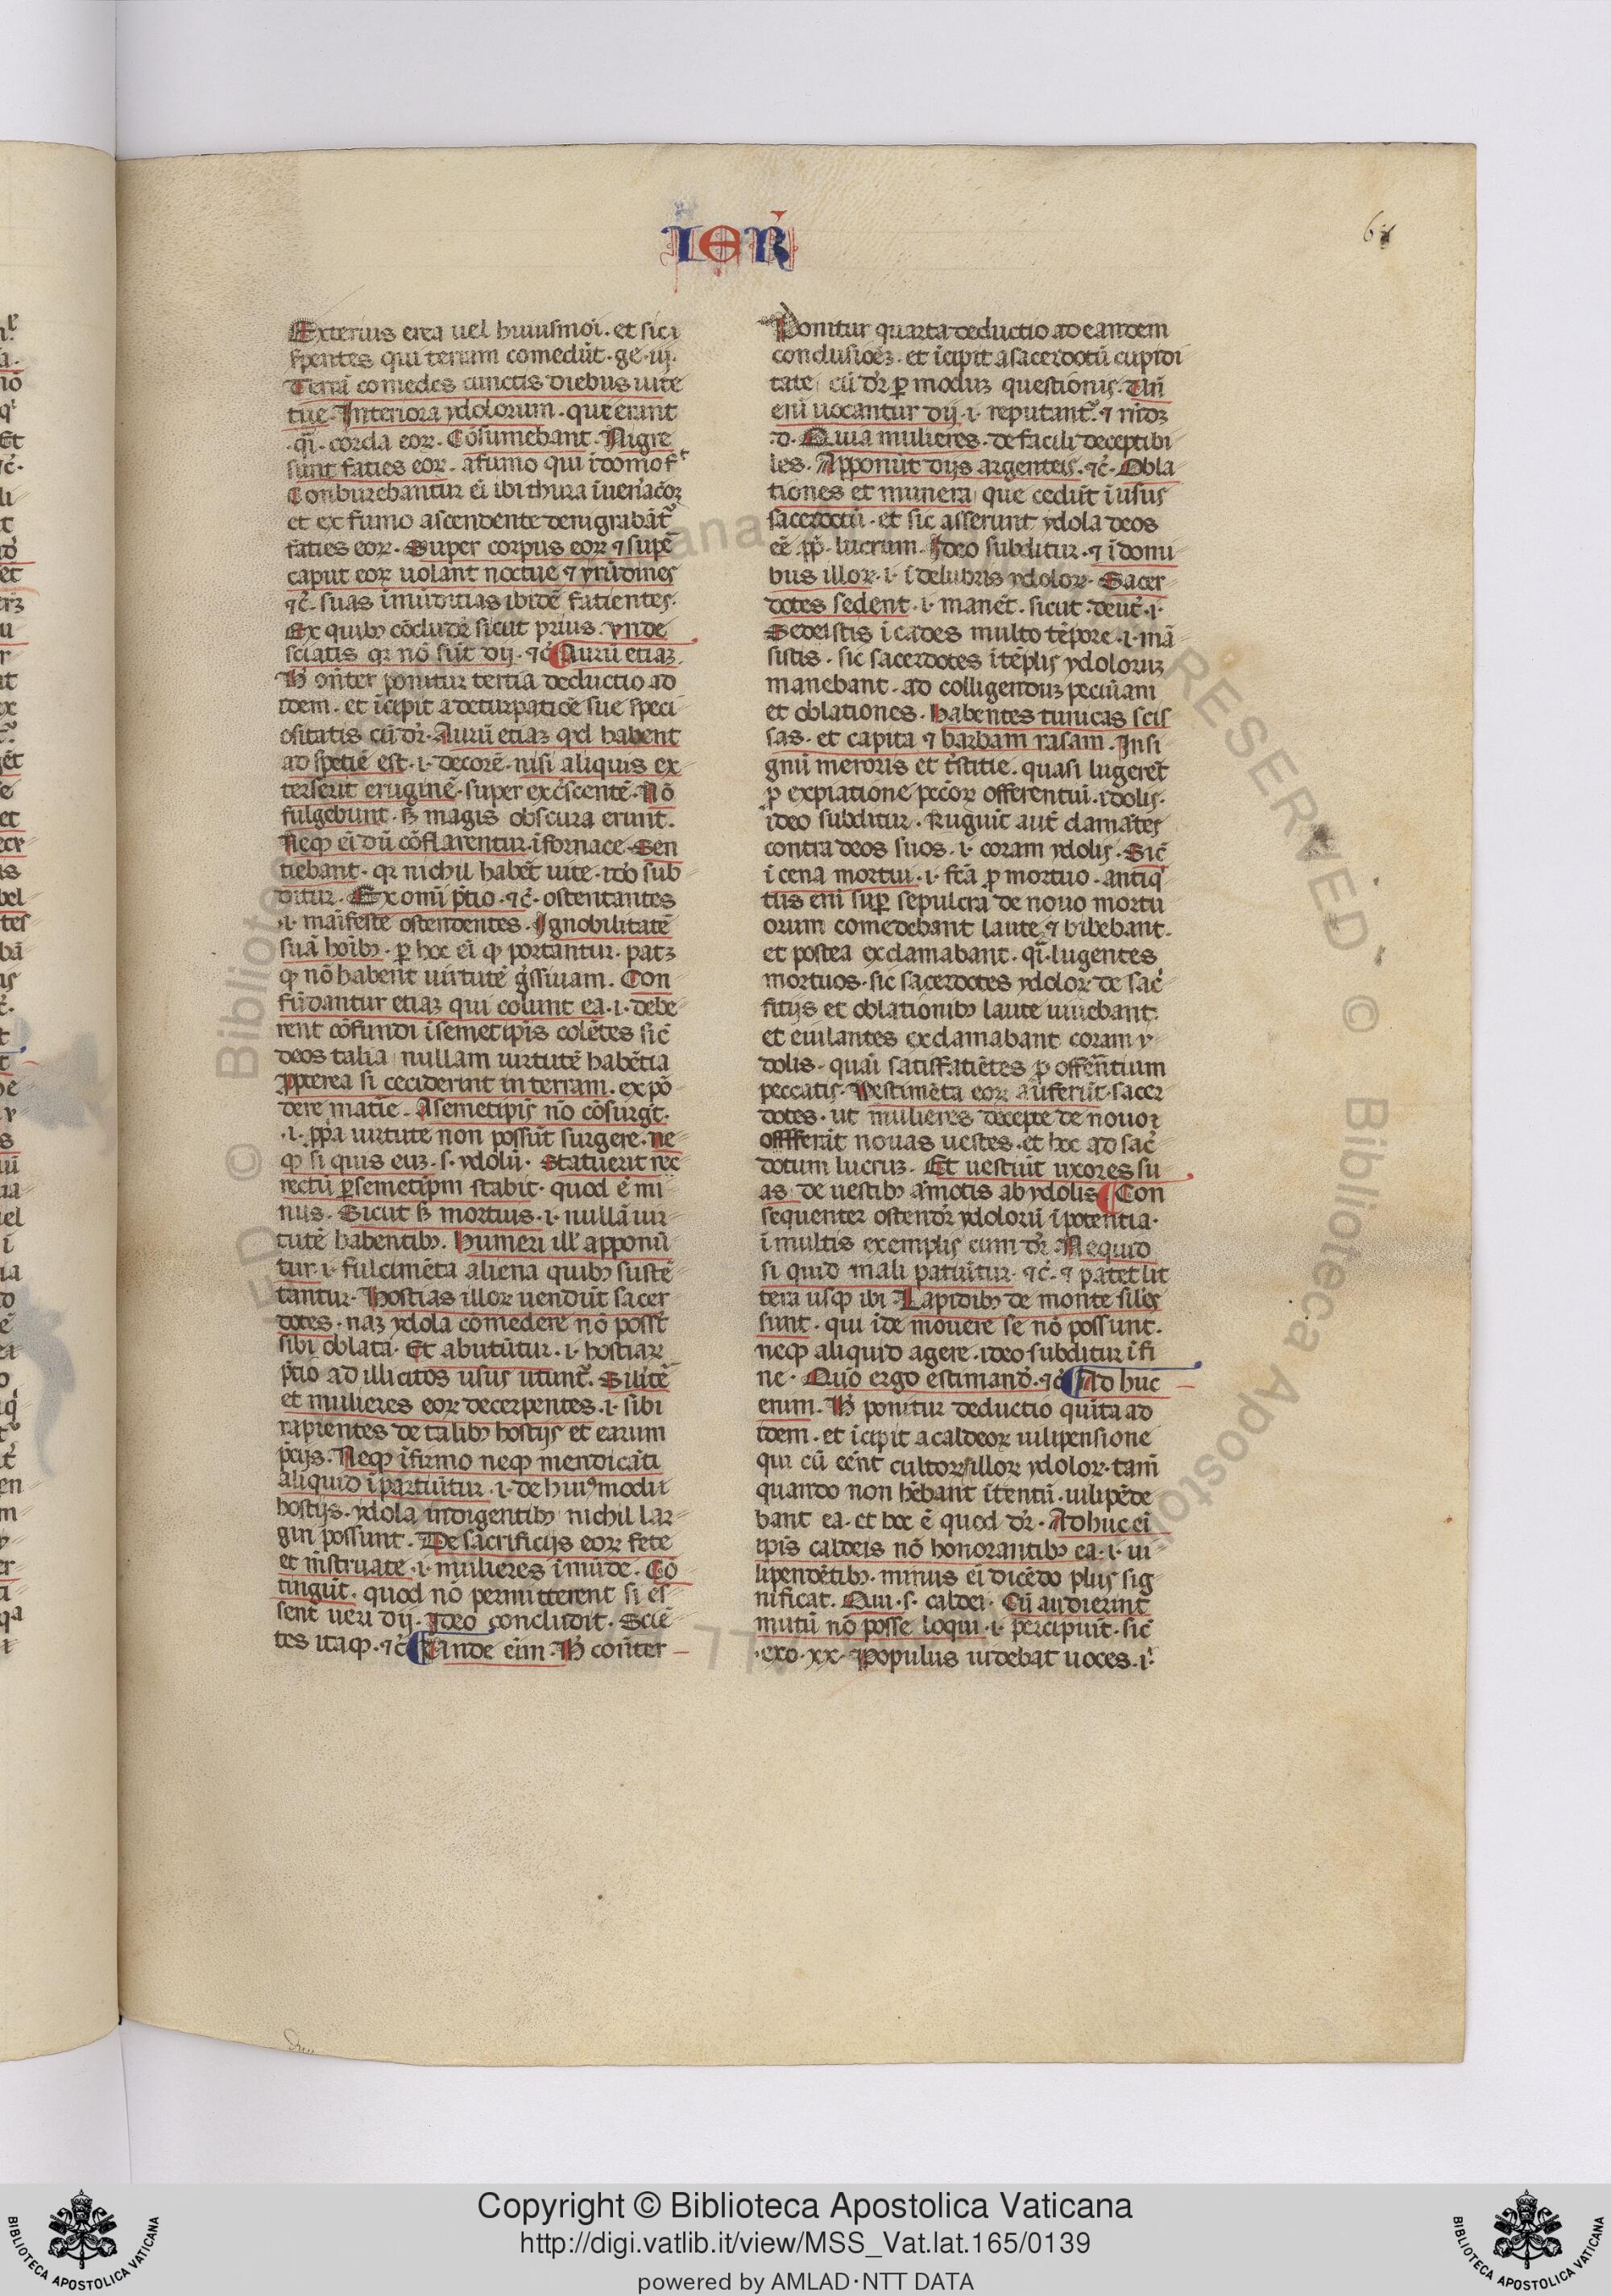 IER
68
Exterius erea uel huiusmoi. et sic i
spentes qui terram comedūt. ge. iij.
Terrā comedes cunctis diebus uite
tue. Interiora ydolorum. que erant
.qͣi. corda eoꝝ. Cōsumebant. Nigre
sunt faties eoꝝ. afumo qui ī domo fꝰ
Comburebantur eī ibi thura
et ex fumo ascendente denigrabātᷣ
faties eoꝝ. Super corpus eoꝝ ⁊ supͤ
caput eoꝝ uolant noctue ⁊ yrūdines
⁊c̄. suas īmūditias ibidē fatientes.
Ex quibꝫ cōcludit᷑ sicut prius. vnde
sciatis qꝛ nō sūt dij. ⁊c̄ ¶ Aurū etiaꝫ.
Hᷓ cōnter ponitur tertia deductio ad
idem. et īcipit a deturpatiōe sue speci
ositatis cū dꝛ̄. Aurū etiaꝫ qd̄ habent
ad spetiē est. i. decorē. nisi aliquis ex
terserit eruginē. super excͥscentē. Nō
fulgebunt. sꝫ magis obscura erunt.
Neqꝫ eī dū cōflarentur. ī fornace. Sen
tiebant. qꝛ nichil habēt uite. ido sub
ditur. Ex omī p̄tio. ⁊c̄. ostentantes
.i. maīfeste ostendentes. Ignobilitatē
suā hoībꝫ. ꝑ hoc eī qꝫ portantur. patꝫ
qꝫ nō habent uirtutē gͥssiuam. Con
fūdantur etiaꝫ qui colunt ea. i. debe
rent cōfundi ī semetipīs colētes sic̄
deos talia nullam uirtutē habētia
Ꝓpterea si ceciderint in terram. ex pō
dere matīe. A semetipīs nō cōsurgūt.
.i. ꝓpͥa uirtute non possūt surgere. ne
qꝫ si quis euꝫ. s. ydolū. Statuerit rec
rectū ꝑ semetipm̄ stabit. quod ē mi
nus. Sicut sꝫ mortuis. i. nullā uir
tutē habentibꝫ. Humeri ill᷑ apponū
tur i. fulcimēta aliena quibꝫ sustē
tantur. Hostias illoꝝ uendūt sacer
dotes. naꝫ ydola comedere nō possūt
sibi oblata. Et abutūtur. i. hostiaꝝ
p̄tio ad illicitos usus utunt᷑. Silīte᷑
et mulieres eoꝝ decerpentes. i. sibi
rapientes de talibꝫ hostijs et earum
p̄cijs. Neqꝫ īfirmo neqꝫ mendicāti
aliquid īpartiūtur. i. de huiꝰmodi
hostijs. ydola indigentibꝫ nichil lar
giri possunt. De sacrificijs eoꝝ fete
et mēstruate. i. mulieres īmūde. Cō
tingūt. quod nō permitterent si es
sent ueri dij. Ideo concludit. Sciē
tes itaqꝫ. ⁊c̄ ¶ Unde enī. Hᷓ conter
Ponitur quarta deductio ad eandem
conclusiōeꝫ. et īcipit a sacerdotū cupidi
tate cū dꝛ̄ ꝑ moduꝫ questionis. Un̄
enī uocantur dij. i. reputant᷑. ⁊ rn̄dꝫ
.d. Quia mulieres. de facili deceptibi
les. Apponūt dijs argenteis. ⁊c̄. Obla
tiones et munera que cedūt ī usus
sacerdotū. et sic asserunt ydola deos
eē ꝓp̄. lucrum. Ideo subditur. ⁊ ī domi
bus illoꝝ. i. ī delubris ydoloꝝ. Sacer
dotes sedent. i. manēt. sicut. deut̄. i.
Sedistis ī cades multo tēpore. i. mā
sistis. sic sacerdotes ī tēplis ydoloruꝫ
manebant. ad colligenduꝫ pecūiam
et oblationes. Habentes tunicas scis
sas. et capita ⁊ barbam rasam. In si
gnū meroris et tͥstitie. quasi lugerēt
ꝓ expiatione pc̄coꝝ offerentiū. idolis.
ideo subditur. Rugiūt aut̄ clamātes
contra deos suos. i. coram ydolis. Sic̄
ī cena mortui. i. fc̄a ꝓ mortuo. antiqͥ
tus enī suꝑ sepulcra de nouo mortu
orum comedebant laute ⁊ bibebant.
et postea exclamabant. qͣi. lugentes
mortuos. sic sacerdotes ydoloꝝ de sac̄
fitijs et oblationibꝫ laute uiuebant.
et eiulantes exclamabant coram y
dolis. quāi satisfatiētes ꝓ offēntium
peccatis. Vestimēta eoꝝ auferūt. sacer
dotes. ut mulieres decepte de nouo ı
offferāt nouas uestes. et hoc ad sac̄
dotum lucruꝫ. Et uestiūt uxores su
as de uestibꝫ amotis ab ydolis ¶ Con
sequenter ostendit᷑ ydolorū īpotentia.
ī multis exemplis cum dꝛ̄. Nequid
si quid mali patiūtur. ⁊c̄. ⁊ patet lit
tera usqꝫ ibi. Lapidibꝫ de monte siles
sunt. qui īde mouere se nō possunt.
neqꝫ aliquid agere. ideo subditur ī fi
ne. Quō ergo estimand̄. ⁊c̄ ¶ Ad huc
enim. Hᷓ ponitur deductio quīta ad
idem. et īcipit a caldeoꝝ uilipensione
qui cū eēnt cultores illoꝝ ydoloꝝ. tam̄
quando non hēbant ītentū. uilipēde
bant ea. et hoc ē quod dꝛ̄. Ad huc eī
ipīs caldeis nō honorantibꝫ ea. i. ui
lipendētibꝫ. minus eī dicēdo plus sig
nificat. Qui. s. caldei. Cū audierint
mutū nō posse loqui. i. percipiūt. sic̄
.exo. xx. Populus uidebat uoces. i.
Copyright © Biblioteca Apostolica Vaticana
http://digi.vatlib.it/view/MSS_Vat.lat.165/0139
powered by AMLAD·NTT DATA
BIBLIOTECA APOSTOLICA VATICANA
BIBLIOTECA APOSTOLICA VATICANA